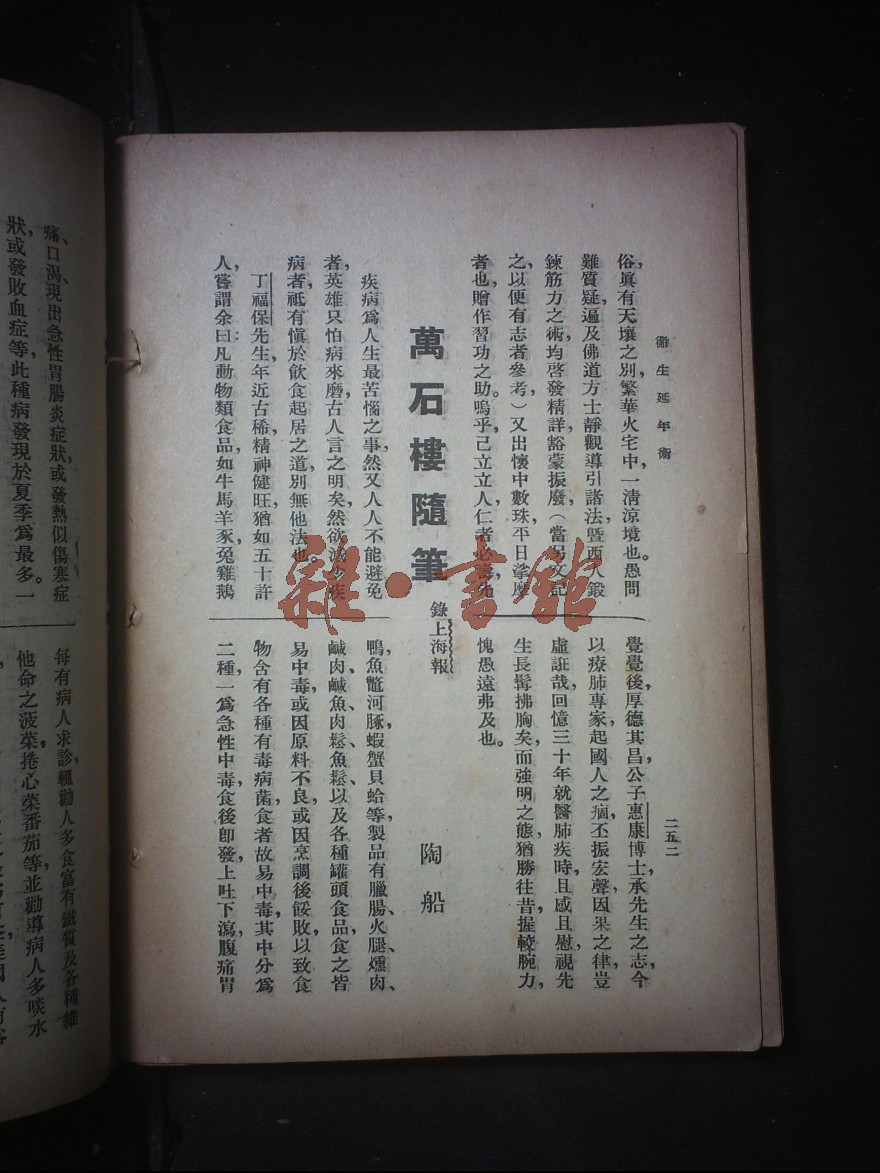 衞生延年術
二五二
俗，眞有天壤之別，繁華火宅中，一清涼境也。愚問
難質疑，逼及佛道方士靜觀導引諸法，曁西人鍛
鍊筋力之術，均啓發精詳，豁蒙振廢，（當另文記
之，以便有志者參考，）又出懷中數珠，平日挲摩
者也，贈作習功之助。嗚乎，己立立人，仁者必壽，先
覺覺後，厚德其昌，公子惠康博士，承先生之志，今
以療肺專家，起國人之痼，丕振宏聲，因果之律，豈
虛誑哉，回憶三十年就醫肺疾時，且感且慰，視先
生長髯拂胸矣，而強明之態，猶勝往昔，握較腕力，
愧愚遠弗及也。
萬石樓隨筆
錄上海報
陶船
疾病爲人生最苦惱之事，然又人人不能避免
者，英雄只怕病來磨，古人言之明矣，然欲減少疾
病者，祗有慎於飲食起居之道，別無他法也。
丁福保先生，年近古稀，精神健旺，猶如五十許
人，嘗謂余曰：凡動物類食品，如牛馬羊豕兔雞鵝
鴨魚鼈河豚蝦蟹貝蛤等，製品有臘腸、火腿、燻肉、
鹹肉、鹹魚、肉鬆、魚鬆、以及各種罐頭食品，食之皆
易中毒，或因原料不良，或因烹調後餒敗，以致食
物含有各種有毒病菌，食者故易中毒，其中分爲
二種，一爲急性中毒，食後卽發，上吐下瀉，腹痛胃
痛、口渴、現出急性胃腸炎症狀，或發熱似傷寒症
狀，或發敗血症等，此種病發現於夏季爲最多。一
每有病人求診，輒勸人多食富有鐵質及各種維
他命之菠菜、捲心菜、番茄等，並勸導病人多啖水
雜·書館